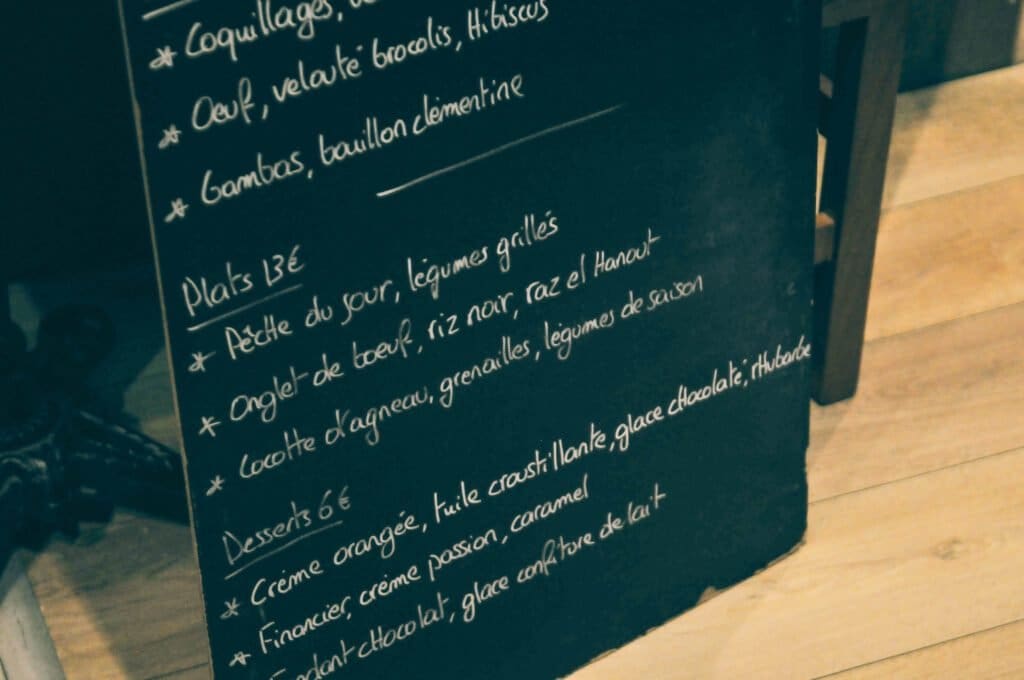 * Coquillages,
* Oeuf, velouté brocolis, Hibiscus
* Gambas, bouillon clémentine
Plats 13€
* Pêche du jour, légumes grillés
* Onglet de boeuf, riz noir, raz el Hanout
* Cocotte d'agneau, grenailles, légumes de saison
Desserts 6€
* Créme orangée, tuile croustillante, glace chocolaté, rhubarbe
* Financier, créme passion, caramel
Fondant chocolat, glace confiture de lait